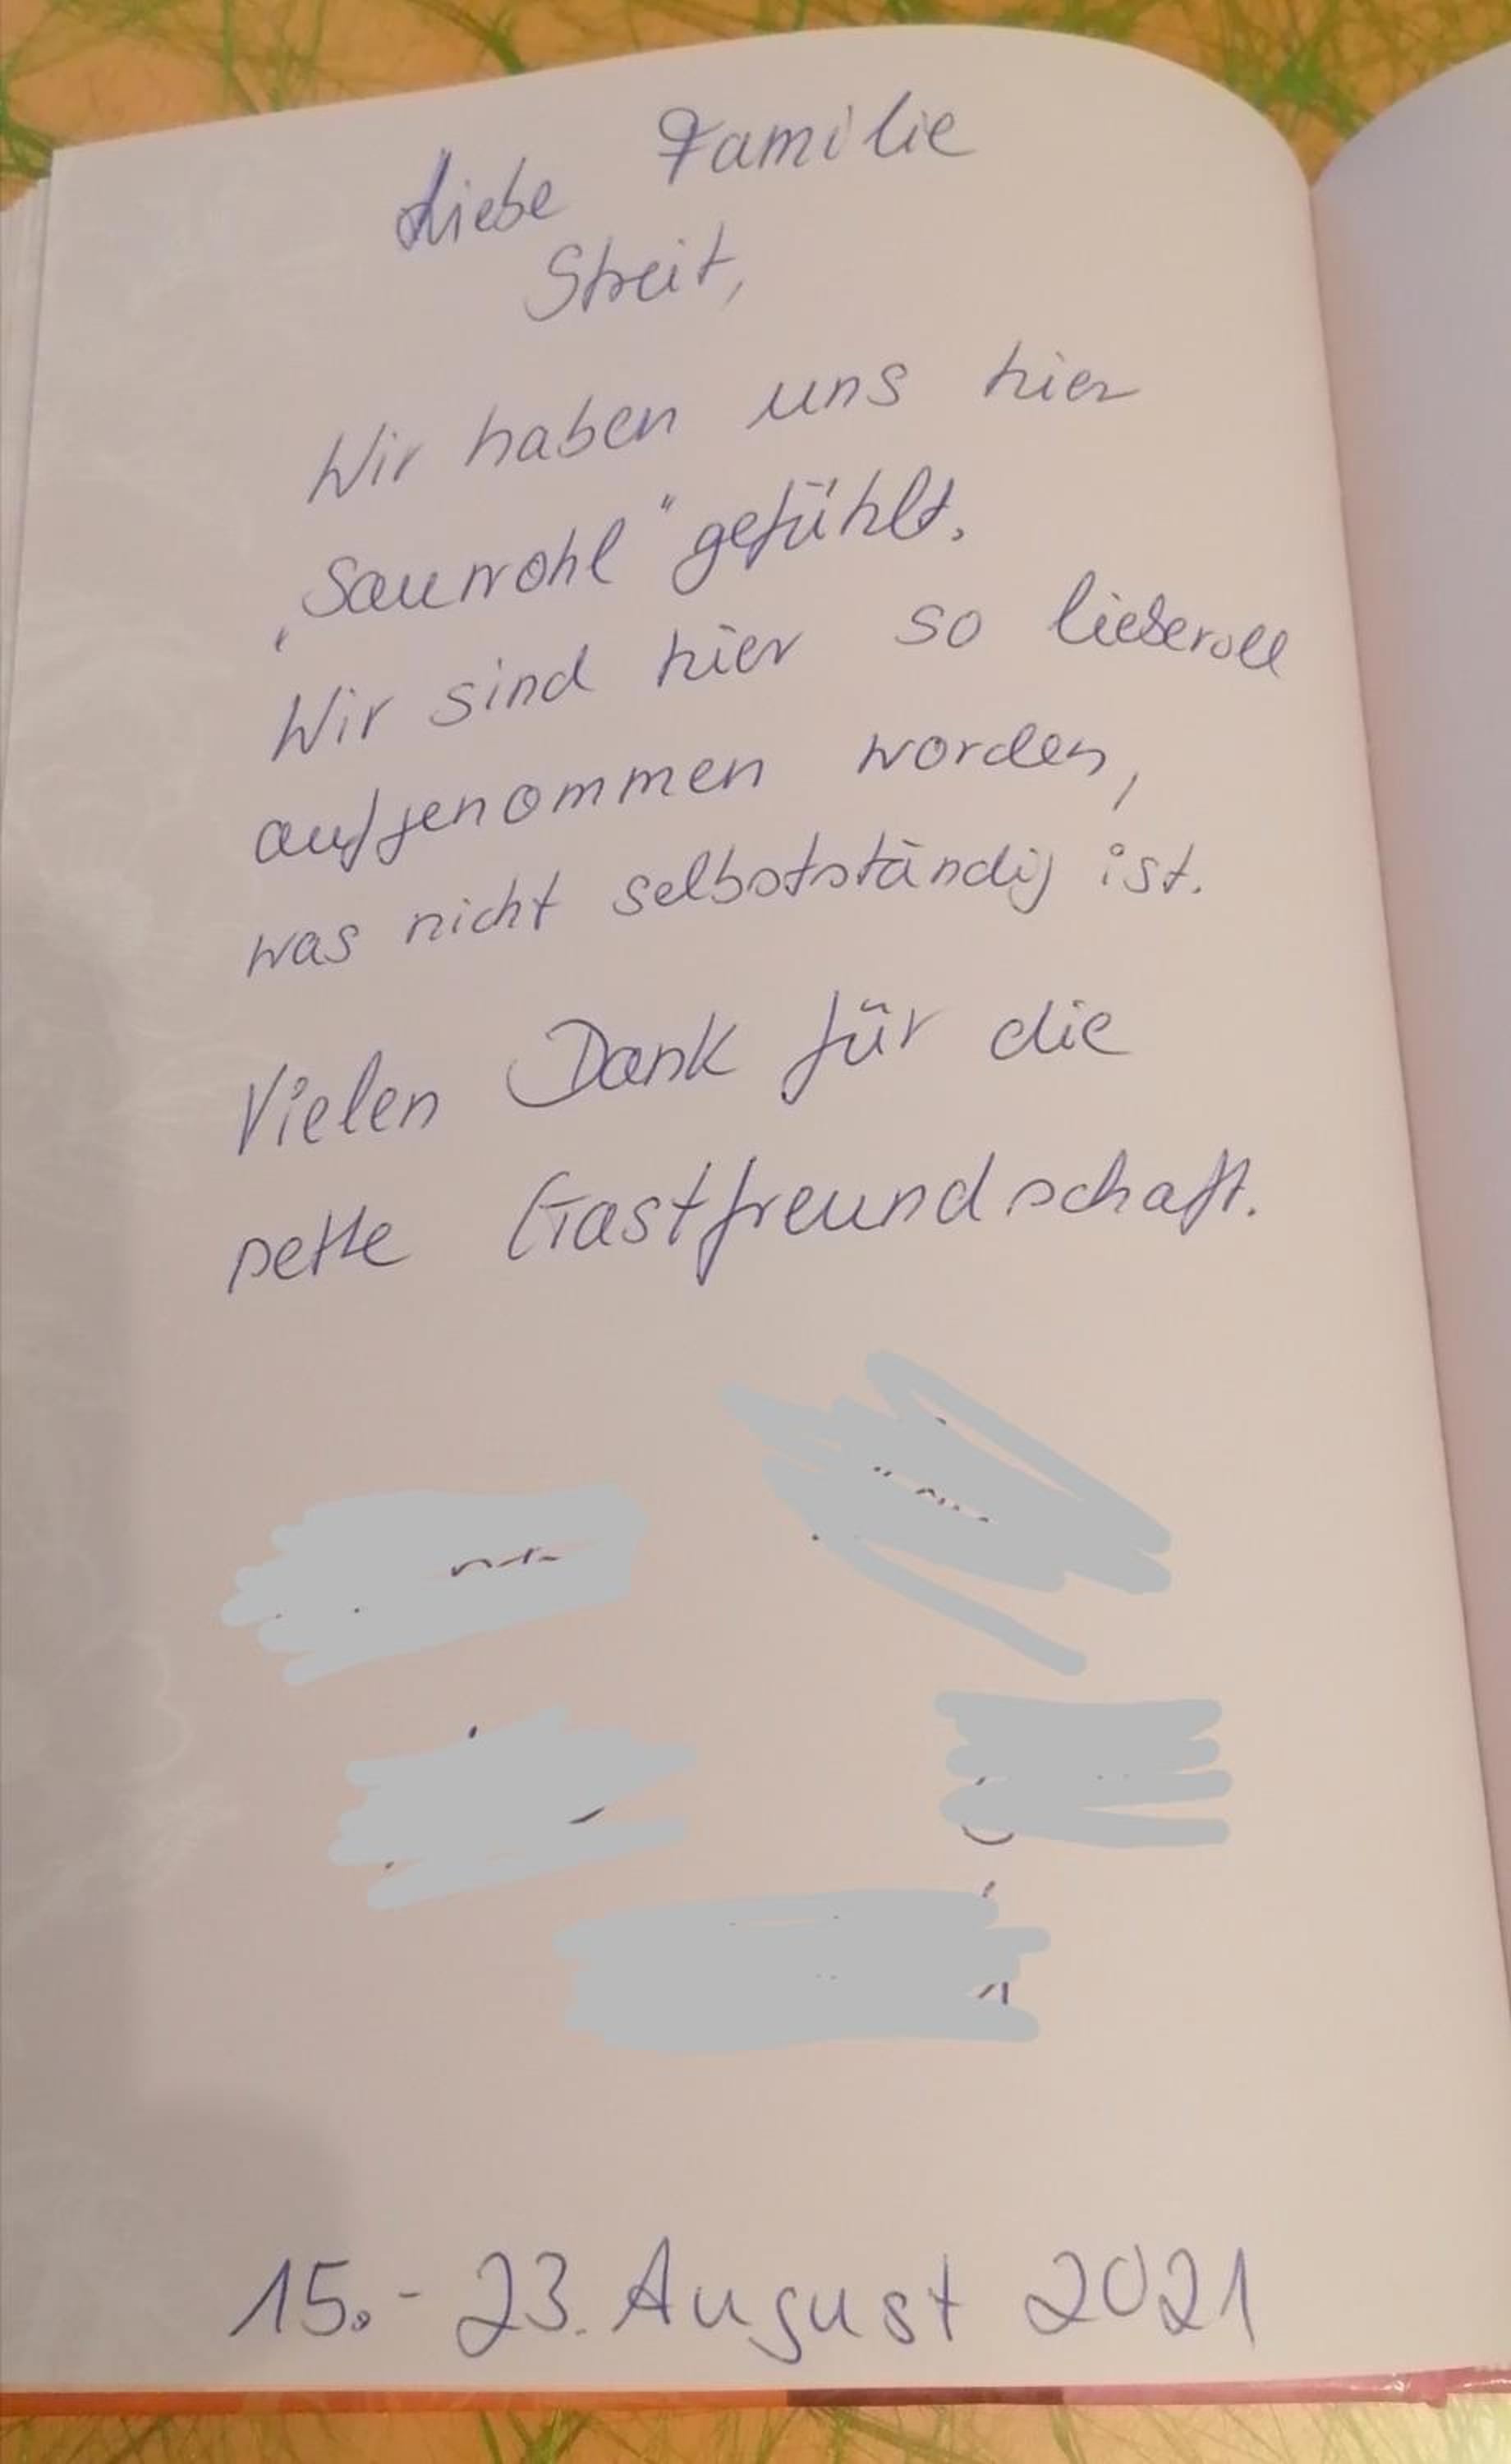 Liebe Familie
Streit,
Wir haben uns hier
„Sauwohl" gefühlt.
Wir sind hier so liebevoll
aufgenommen worden,
was nicht selbstständig ist.
Vielen Dank für die
nette Gastfreundschaft.
15.- 23. August 2021